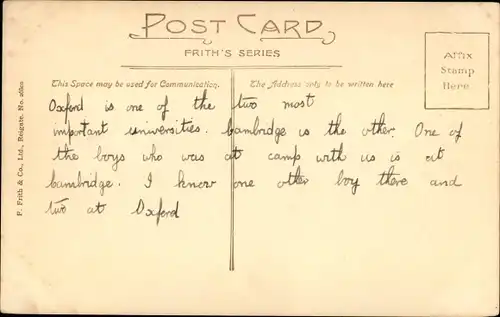 POST CARD
FRITH'S SERIES
This Space may be used for Communication.
The Address only to be written here
AFFIX
STAMP
HERE
Oxford is one of the two most
important universities. Cambridge is the other. One of
the boys who was at camp with us is at
Cambridge. I know one other boy there and
two at Oxford
F. Frith & Co., Ltd., Reigate. No.